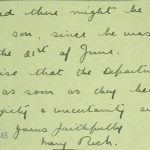 ed there might be
son, since he was
the 21st of June.
ise that the Departm
as soon as they hea
uncertainty an
Yours faithfully
Mary Rech.